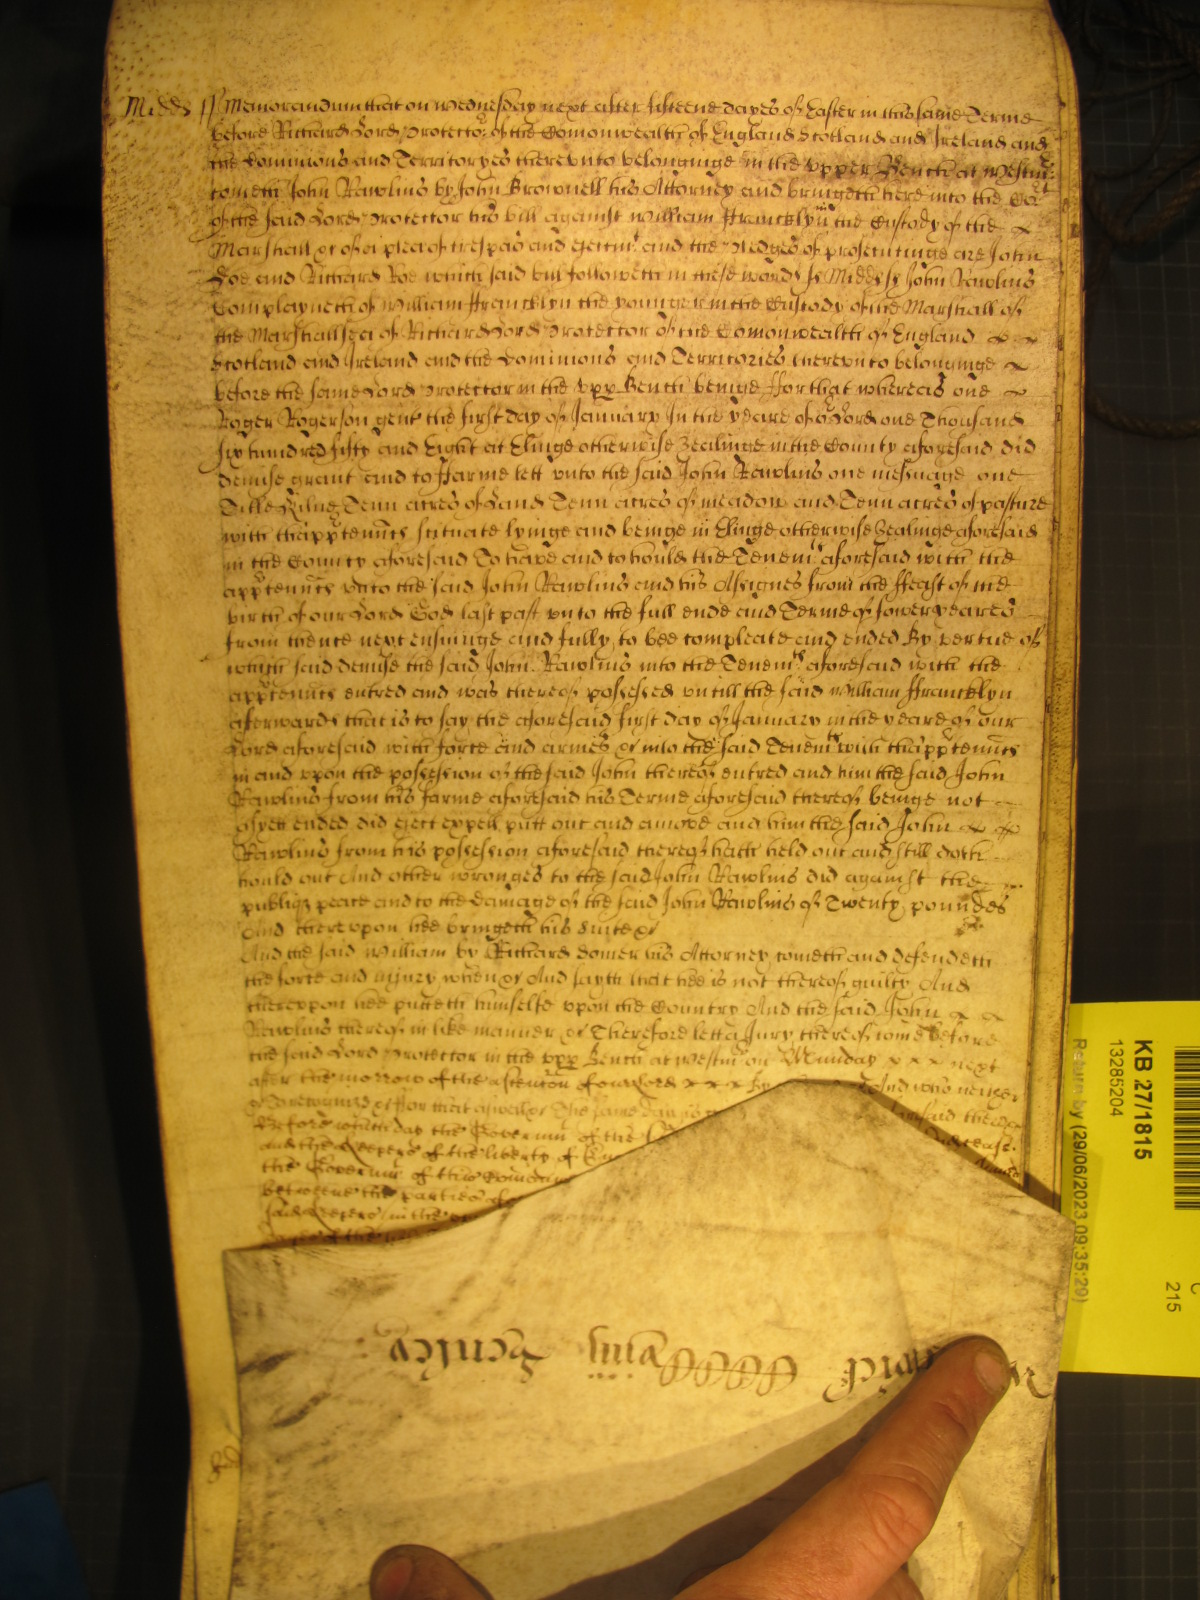 Midds ss Memorandum that on Wednesday next after fifteene dayes of Easter in this same Terme
before Richard Lord Protector of the Comonwealth of England Scotland and Ireland and
the Dominions and Territoryes thereunto belonginge in the upper Bench at Westmr
cometh John Rawlins by John Brownell his Attorney and bringeth here into the Cort
of the said Lord Protector his bill against William Francklyn in the Custody of the
Marshall &c of a plea of trespas and ejectmt and the pledges of prosecutinge are John
Doe and Richard Roe which said bill followeth in these words ss Midds ss John Rawlins
Complayneth of William Francklyn the younger in the Custody of the Marshall of
the Marshallsea of Richard Lord Protector of the Comonwealth of England
Scotland and Ireland and the Dominions and Territories thereunto belonginge
before the same Lord Protector in the upp Bench beinge ffor that whereas one
Roger Rogerson gent the first day of January In the yeare of or Lord one Thousand
six hundred fifty and Eight at Elinge otherwise Zealinge in the County aforesaid did
demise grant and to Farme lett unto the said John Rawlins one messuage one
Tenn acres of Land Tenn acres of meadow and Tenn acres of pasture
with thapptenncs scituate lyinge and beinge in Elinge otherwise Zealinge aforesaid
in the County aforesaid To have and to hould the Tenemts aforesaid with the
apptenncs unto the said John Rawlins and his Assignes from the Feast of the
birth of our Lord God last past unto the full ende and Terme of fower yeares
from thence next ensuinge and fully to bee compleate and ended By vertue of
which said demise the said John Rawlins into the Tenemts aforesaid with the
apptenncs entred and was thereof possessed untill the said William Francklyn
afterwards that is to say the aforesaid first day of January in the yeare of our
Lord aforesaid with force and armes &c into the said Tenemts with thapptenncs
in and upon the possession of the said John thereof entred and him the said John
Rawlins from his farme aforesaid his Terme aforesaid thereof beinge not
as yett ended did eject expell putt out and amove and him the said John
Rawlins from his possession aforesaid thereof hath held out and still doth
hould out And other wronges to the said John Rawlins did against the
publiq peace and to the damage of the said John Rawlins of Twenty poundes
And thereupon hee bringeth his suite &c
And the said William by Richard Domer his Attorney cometh and defendeth
the force and injury when &c And sayth that hee is not thereof guilty And
thereupon hee putteth himselfe upon the Country And the said John
Rawlins thereof in like manner &c Therefore lett a Jury thereof come before
the said Lord Protector in the upp Bench at Westmr on Munday x x x next
after the morrow of the ascention of our Lord x x x By And who neither
&c to recognize &c ffor that aswell &c The same day is
Before which day the Governmt of the
and the Keepers of the liberty of
the Governmt of this
betweene the parties
said Keepers in the
KB 27/1815
13285204
Return by (29/06/2023 09:35:29)
215